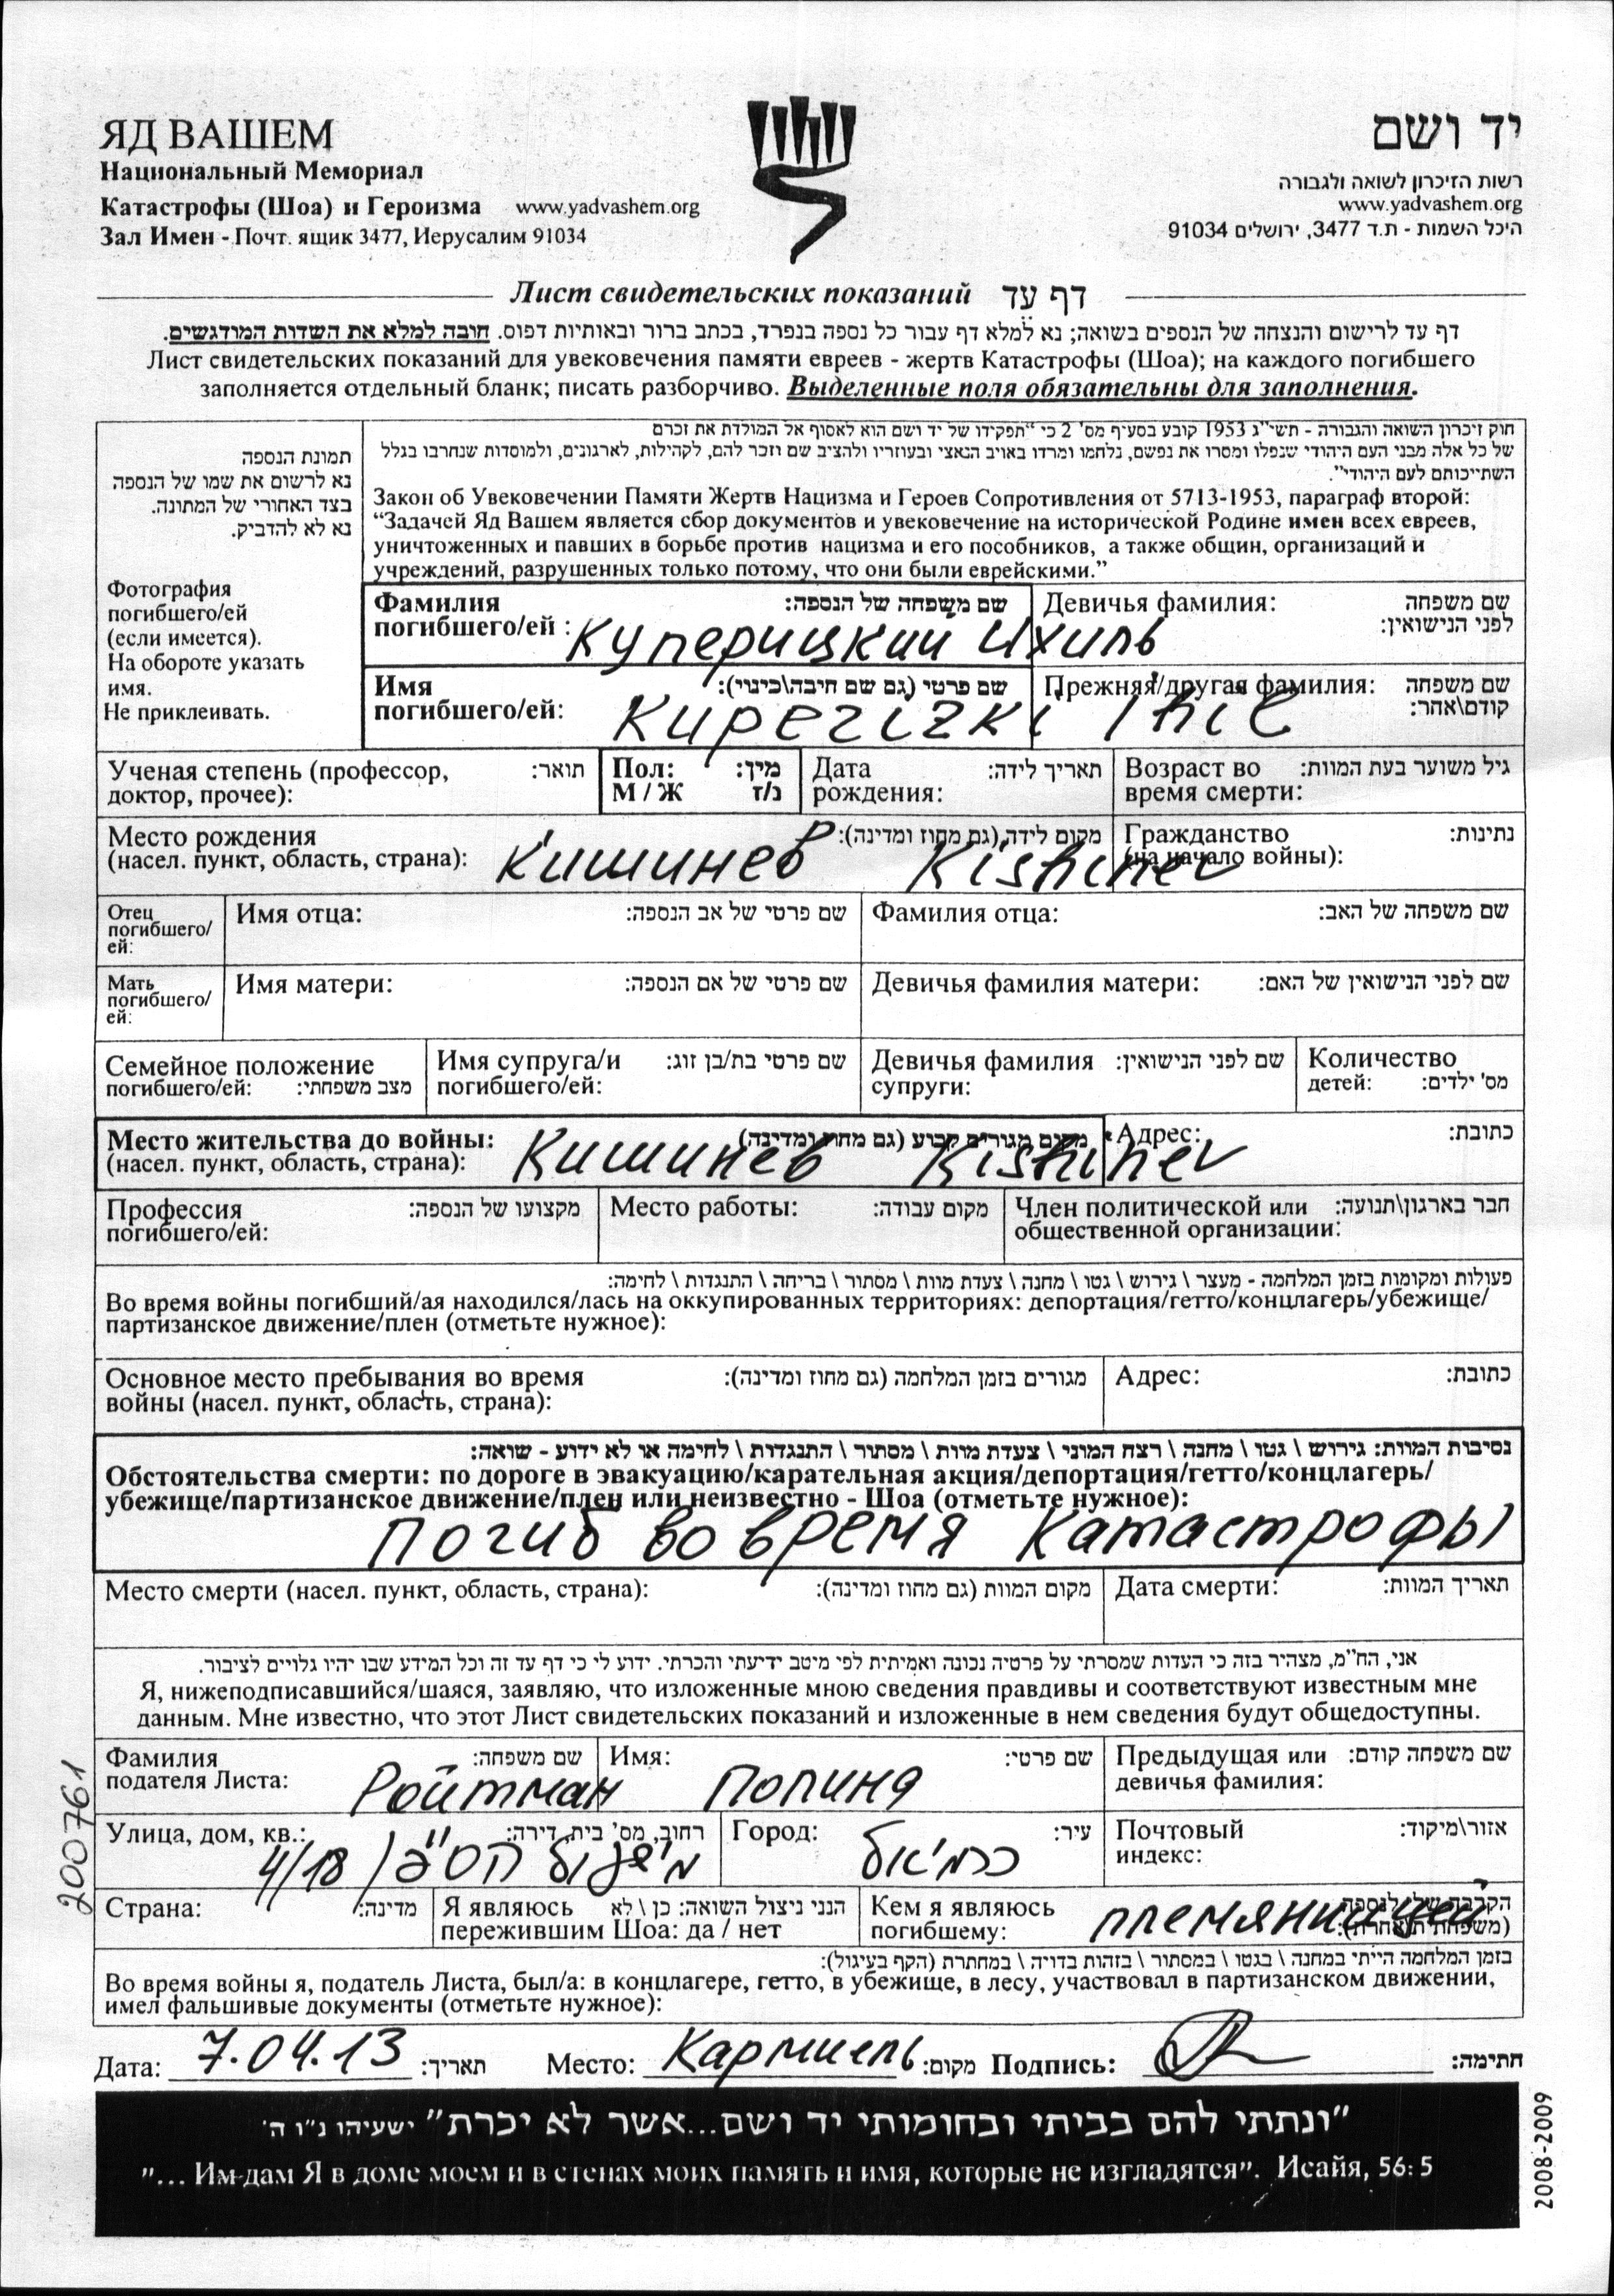 ЯД ВАШЕМ
Национальный Мемориал
Катастрофы (Шоа) и Героизма www.yadvashem.org
Зал Имен - Почт. ящик 3477, Иерусалим 91034
יד ושם
רשות הזיכרון לשואה ולגבורה
www.yadvashem.org
היכל השמות - ת.ד 3477, ירושלים 91034
Лист свидетельских показаний דף עד
דף עד לרישום והנצחה של הנספים בשואה; נא למלא דף עבור כל נספה בנפרד, בכתב ברור ובאותיות דפוס. חובה למלא את השדות המודגשים.
Лист свидетельских показаний для увековечения памяти евреев - жертв Катастрофы (Шоа); на каждого погибшего
заполняется отдельный бланк; писать разборчиво. Выделенные поля обязательны для заполнения.
תמונת הנספה
נא לרשום את שמו של הנספה
בצד האחורי של המתונה.
נא לא להדביק.
Фотография
погибшего/ей
(если имеется).
На обороте указать
имя.
Не приклеивать.
חוק זיכרון השואה והגבורה - תשי"ג 1953 קובע בסעיף מס' 2 כי "תפקידו של יד ושם הוא לאסוף אל המולדת את זכרם
של כל אלה מבני העם היהודי שנפלו ומסרו את נפשם, נלחמו ומרדו באויב הנאצי ובעוזריו ולהציב שם וזכר להם, לקהילות, לארגונים, ולמוסדות שנחרבו בגלל
השתייכותם לעם היהודי".
Закон об Увековечении Памяти Жертв Нацизма и Героев Сопротивления от 5713-1953, параграф второй:
"Задачей Яд Вашем является сбор документов и увековечение на исторической Родине имен всех евреев,
уничтоженных и павших в борьбе против нацизма и его пособников, а также общин, организаций и
учреждений, разрушенных только потому, что они были еврейскими."
Фамилия שם משפחה של הנספה: Девичья фамилия: שם משפחה
погибшего/ей : Куперицкий Ихиль לפני הנישואין:
Имя שם פרטי (גם שם חיבה\כינוי): Прежняя/другая фамилия: שם משפחה
погибшего/ей: Kuperizki Ihil קודם\אחר:
Ученая степень (профессор, תואר: Пол: מין: Дата תאריך לידה: Возраст во גיל משוער בעת המוות:
доктор, прочее): М / Ж ז/נ рождения: время смерти:
Место рождения מקום לידה (גם מחוז ומדינה): Гражданство נתינות:
(насел. пункт, область, страна): Кишинев Kishinev (на начало войны):
Отец Имя отца: שם פרטי של אב הנספה: Фамилия отца: שם משפחה של האב:
погибшего/
ей:
Мать Имя матери: שם פרטי של אם הנספה: Девичья фамилия матери: שם לפני הנישואין של האם:
погибшего/
ей:
Семейное положение Имя супруга/и שם פרטי בת/בן זוג: Девичья фамилия שם לפני הנישואין: Количество
погибшего/ей: מצב משפחתי: погибшего/ей: супруги: детей: מס' ילדים:
Место жительства до войны: מקום מגורים קבוע (גם מחוז ומדינה) Адрес: כתובת:
(насел. пункт, область, страна): Кишинев Kishinev
Профессия מקצועו של הנספה: Место работы: מקום עבודה: Член политической или חבר בארגון\תנועה:
погибшего/ей: общественной организации:
פעולות ומקומות בזמן המלחמה - מעצר \ גירוש \ גטו \ מחנה \ צעדת מוות \ מסתור \ בריחה \ התנגדות \ לחימה:
Во время войны погибший/ая находился/лась на оккупированных территориях: депортация/гетто/концлагерь/убежище/
партизанское движение/плен (отметьте нужное):
Основное место пребывания во время מגורים בזמן המלחמה (גם מחוז ומדינה): Адрес: כתובת:
войны (насел. пункт, область, страна):
נסיבות המוות: גירוש \ גטו \ מחנה \ רצח המוני \ צעדת מוות \ מסתור \ התנגדות \ לחימה או לא ידוע - שואה:
Обстоятельства смерти: по дороге в эвакуацию/карательная акция/депортация/гетто/концлагерь/
убежище/партизанское движение/плен или неизвестно - Шоа (отметьте нужное):
Погиб во время Катастрофы
Место смерти (насел. пункт, область, страна): מקום המוות (גם מחוז ומדינה): Дата смерти: תאריך המוות:
אני, הח"מ, מצהיר בזה כי העדות שמסרתי על פרטיה נכונה ואמיתית לפי מיטב ידיעתי והכרתי. ידוע לי כי דף עד זה וכל המידע שבו יהיו גלויים לציבור.
Я, нижеподписавшийся/шаяся, заявляю, что изложенные мною сведения правдивы и соответствуют известным мне
данным. Мне известно, что этот Лист свидетельских показаний и изложенные в нем сведения будут общедоступны.
Фамилия שם משפחה: Имя: שם פרטי: Предыдущая или שם משפחה קודם:
подателя Листа: Ройтман Полина девичья фамилия:
Улица, дом, кв.: רחוב, מס' בית, דירה: Город: עיר: Почтовый אזור\מיקוד:
4/18 כרמיאל индекс:
Страна: מדינה: Я являюсь הנני ניצול השואה: כן \ לא Кем я являюсь הקרבה שלי לנספה
пережившим Шоа: да / нет погибшему: племянницей (משפחתית\אחרת):
בזמן המלחמה הייתי במחנה \ בגטו \ במסתור \ בזהות בדויה \ במחתרת (הקף בעיגול):
Во время войны я, податель Листа, был/а: в концлагере, гетто, в убежище, в лесу, участвовал в партизанском движении,
имел фальшивые документы (отметьте нужное):
Дата: 7.04.13 תאריך: Место: Кармиель מקום: Подпись: חתימה:
"ונתתי להם בביתי ובחומותי יד ושם...אשר לא יכרת" ישעיהו נ"ו ה'
"... Им дам Я в доме моем и в стенах моих память и имя, которые не изгладятся". Исайя, 56: 5
200761
2008-2009